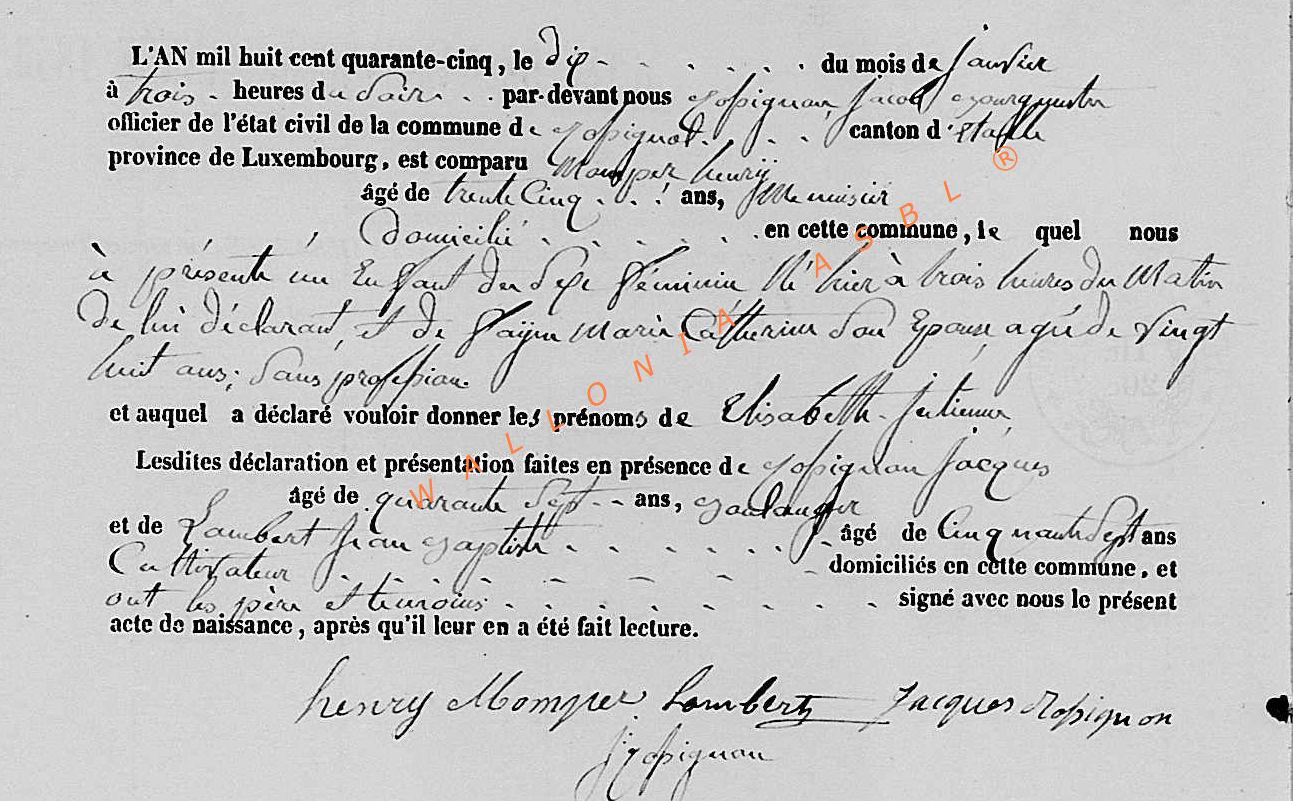 L'AN mil huit cent quarante-cinq, le Dix du mois de Janvier
à trois heures du Soir par-devant nous Rossignon Jacob Bourgmestre
officier de l'état civil de la commune de canton d'Etalle
province de Luxembourg, est comparu Momper henry
âgé de trente Cinq ans, Menuisier
Domicilié en cette commune, le quel nous
à présenté un Enfant du Sexe féminin Né hier à trois heures du Matin
De lui déclarant, et de Marie Catherine Son Epouse, agé de Vingt
huit ans, Sans profession
et auquel a déclaré vouloir donner les prénoms de Elisabeth Julienne
Lesdites déclaration et présentation faites en présence de Rossignon Jacques
âgé de quarante Sept ans, Boulanger
et de Lambert Jean Baptiste âgé de Cinquante Sept ans
Cultivateur domiciliés en cette commune, et
ont les père et temoins signé avec nous le présent
acte de naissance, après qu'il leur en a été fait lecture.
henry Momper Lambert Jacques Rossignon
J Rossignon
WALLONIA ASBL ®